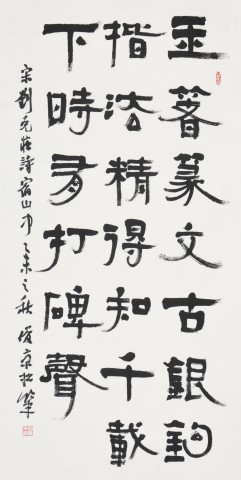 玉箸篆文古銀鉤
楷法精得知千載
下時有打碑聲
宋劉克莊詩宿山中 乙未之秋